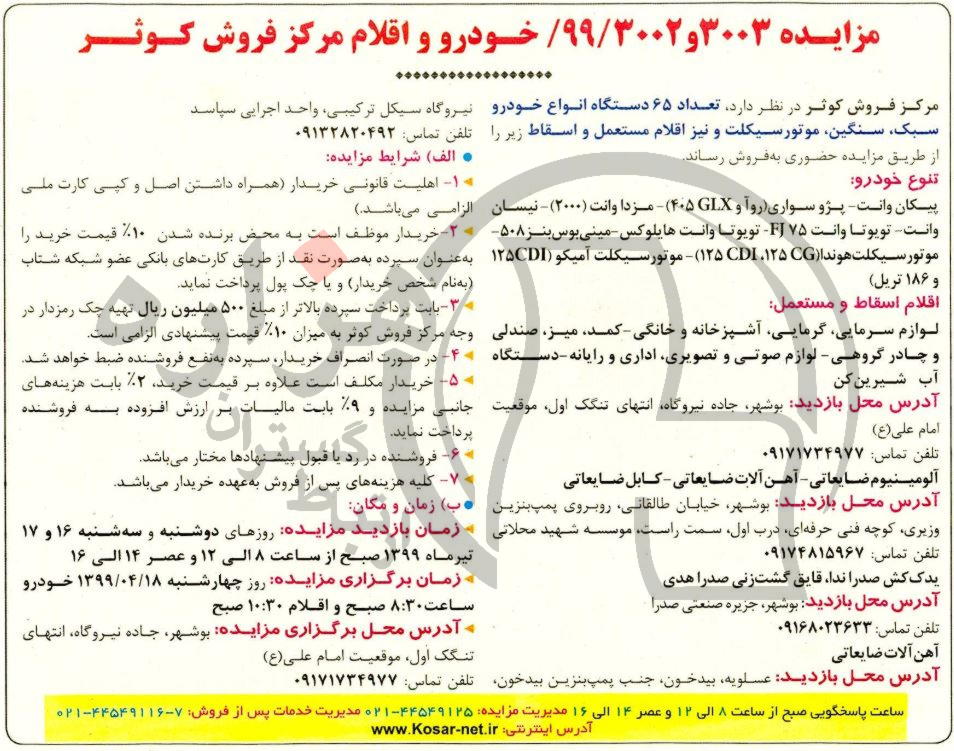 مزایـده ۳۰۰۳و۹۹/۳۰۰۲/ خـودرو و اقلام مرکز فروش کـوثـر
مرکز فـروش کوثر در نظر دارد، تعـداد ۶۵ دستگاه انـواع خـودرو
سبـک، سـنگین، موتورسـیکلت و نیز اقلام مستعمل و اسـقاط زیر را
از طریـق مزایده حضوری به‌فروش رساند.
تنوع خودرو:
پیـکان وانـت- پـژو سـواری(روآ و GLX ۴۰۵) - مـزدا وانت (۲۰۰۰) - نیسـان
وانـت- تویوتـا وانت FJ ۷۵ - تویوتـا وانت هایلوکس-مینی‌بوس‌بنـز ۵۰۸-
موتورسـیکلت‌هوندا(۱۲۵ CG، ۱۲۵ CDI) - موتورسـیکلت آمیکو (۱۲۵CDI
و ۱۸۶ تریل)
اقلام اسقاط و مستعمل:
لـوازم سـرمایی، گرمایـی، آشـپزخانه و خانگـی-کمـد، میـز، صندلـی
و چـادر گروهـی- لوازم صوتـی و تصویری، اداری و رایانه-دسـتگاه
آب شیرین‌کن
آدرس محل بازدید: بوشهر، جاده نیروگاه، انتهای تنگک اول، موقعیت
امام علی(ع)
تلفن تماس: ۰۹۱۷۱۷۳۴۹۷۷
آلومینیوم‌ضایعاتی-آهن‌آلات‌ضایعاتی-کابل‌ضایعاتی
آدرس محل بازدیـد: بوشهر، خیابان طالقانـی، روبـروی پمپ‌بنزین
وزیری، کوچه فنی حرفه‌ای، درب اول، سمت راست، موسسه شهید محلاتی
تلفن تماس: ۰۹۱۷۴۸۱۵۹۶۷
یدک‌کش صدرا ندا، قایق گشت‌زنی صدرا هدی
آدرس محل بازدید: بوشهر، جزیره صنعتی صدرا
تلفن تماس: ۰۹۱۶۸۰۲۳۶۳۳
آهن‌آلات‌ضایعاتی
آدرس محل بازدیـد: عسـلویه، بیدخـون، جنـب پمپ‌بنزین بیدخون،
نیـروگاه سیـکل ترکیبـی، واحـد اجرایی سپاسد
تلفن تماس: ۰۹۱۳۲۸۲۰۴۹۲
● الف) شرایط مزایده:
۱- اهلیـت قانونـی خریـدار (همـراه داشـتن اصـل و کپـی کارت ملـی
الزامـی می‌باشـد.)
۲-خریـدار موظـف اسـت بـه محـض برنده شـدن ۱۰٪ قیمت خریـد را
به‌عنـوان سـپرده به‌صورت نقـد از طریـق کارت‌های بانکی عضو شـبکه شـتاب
(به‌نام شخص خریدار) و یا چک پول پرداخت نماید.
۳-بابت پرداخت سپرده بالاتر از مبلغ ۵۰۰ میلیون ریال تهیه چک رمزدار در
وجه مرکز فروش کوثر به میزان ۱۰٪ قیمت پیشنهادی الزامی است.
۴- در صورت انصراف خریـدار، سپرده به‌نفع فروشنده ضبط خواهد شـد.
۵- خریـدار مکلـف اسـت علاوه بـر قیمـت خریـد، ۲٪ بابت هزینه‌های
جانبـی مزایـده و ۹٪ بابت مالیـات بـر ارزش افـزوده بـه فروشـنده
پرداخت نماید.
۶- فروشـنده در رد یا قبول پیشـنهادها مختار می‌باشد.
۷- کلیه هزینه‌های پس از فروش به‌عهده خریدار می‌باشد.
● ب) زمان و مکان:
زمـان بازدیـد مزایـده: روزهـای دوشـنبه و سه‌شـنبه ۱۶ و ۱۷
تیرمـاه ۱۳۹۹ صبـح از ساعت ۸ الـی ۱۲ و عصـر ۱۴ الـی ۱۶
زمـان برگزاری مزایـده: روز چهارشـنبه ۱۳۹۹/۰۴/۱۸ خودرو
سـاعت ۸:۳۰ صبـح و اقلام ۱۰:۳۰ صبح
آدرس محل برگـزاری مزایـده: بوشـهر، جـاده نیـروگاه، انتهـای
تنـگک اول، موقعیـت امـام علـی(ع)
تلفن تماس: ۰۹۱۷۱۷۳۴۹۷۷
ساعت پاسخگویی صبح از ساعت ۸ الی ۱۲ و عصر ۱۴ الی ۱۶ مدیریت مزایده: ۴۴۵۴۹۱۲۵-۰۲۱ مدیریت خدمات پس از فروش: ۷-۴۴۵۴۹۱۱۶-۰۲۱
آدرس اینترنتی: www.Kosar-net.ir
هزاره
گستران
ارتباط